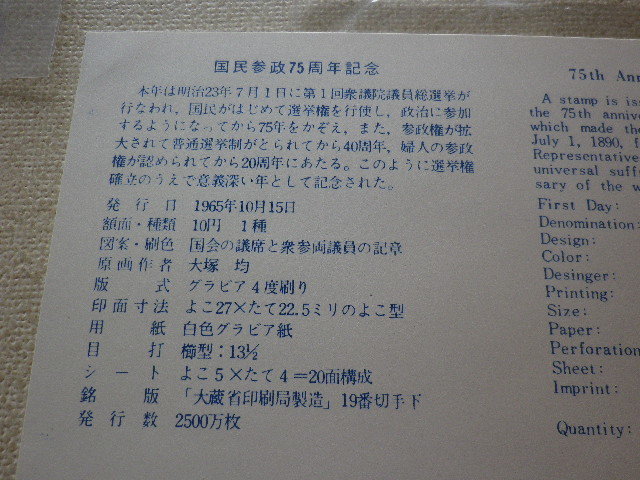 国民参政75周年記念
本年は明治23年7月1日に第1回衆議院議員総選挙が
行なわれ，国民がはじめて選挙権を行使し，政治に参加
するようになってから75年をかぞえ，また，参政権が拡
大されて普通選挙制がとられてから40周年，婦人の参政
権が認められてから20周年にあたる。このように選挙権
確立のうえで意義深い年として記念された。
発行日 1965年10月15日
額面・種類 10円 1種
図案・刷色 国会の議席と衆参両議員の記章
原画作者 大塚 均
版式 グラビア4度刷り
印面寸法 よこ27×たて22.5ミリのよこ型
用紙 白色グラビア紙
目打 櫛型：13½
シート よこ5×たて4＝20面構成
銘版 「大蔵省印刷局製造」19番切手下
発行数 2500万枚
75th Ann
A stamp is iss
the 75th anniver
which made the
July 1, 1890, f
Representative
universal suff
sary of the w
First Day:
Denomination:
Design:
Color:
Desinger:
Printing:
Size:
Paper:
Perforation
Sheet:
Imprint:
Quantity: